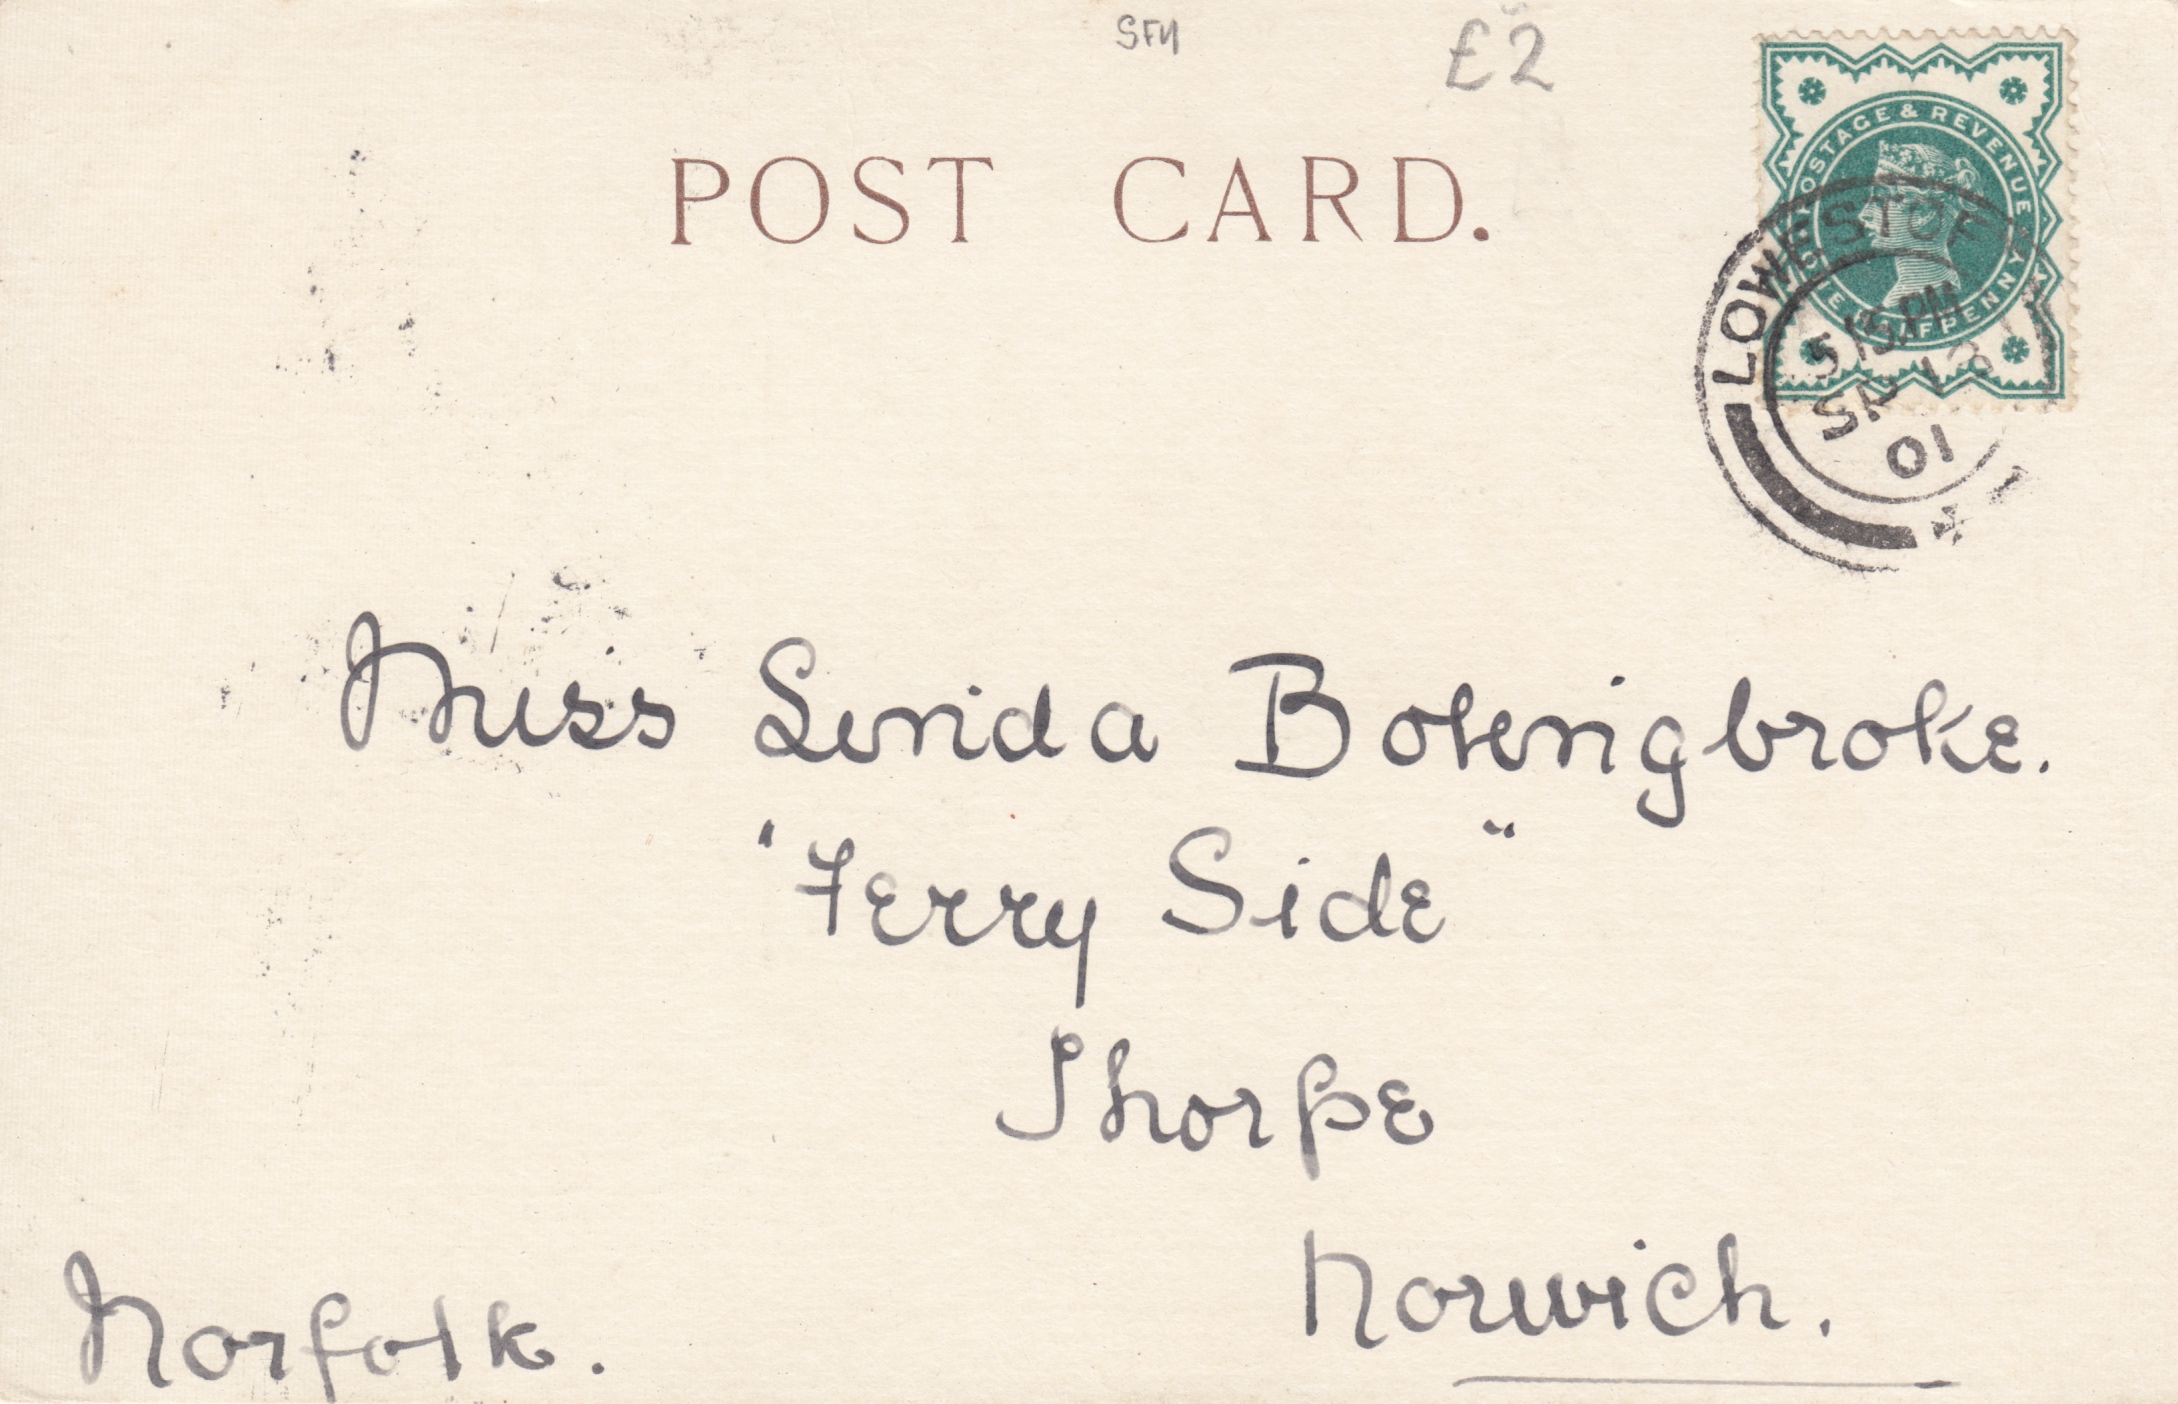 £2
POST CARD.
POSTAGE & REVENUE
HALFPENNY
LOWESTOF
5 15 PM
SP 13
01
Miss Linda Bolingbroke.
"Ferry Side"
Thorpe
Norwich.
Norfolk.